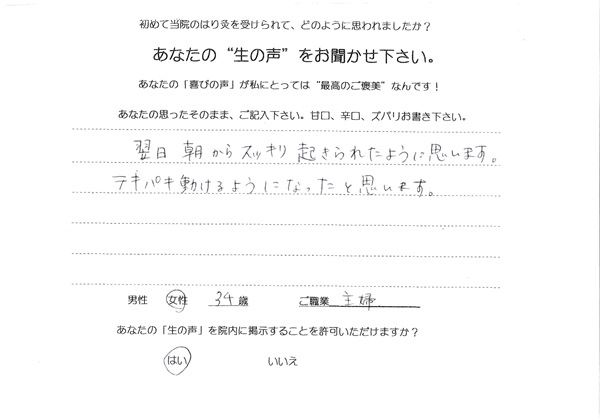 初めて当院のはり灸を受けられて、どのように思われましたか？
あなたの“生の声”をお聞かせ下さい。
あなたの「喜びの声」が私にとっては“最高のご褒美”なんです！
あなたの思ったそのまま、ご記入下さい。甘口、辛口、ズバリお書き下さい。
翌日 朝からスッキリ起きられたように思います。
テキパキ動けるようになったと思います。
男性 女性 34歳 ご職業 主婦
あなたの「生の声」を院内に掲示することを許可いただけますか？
はい いいえ